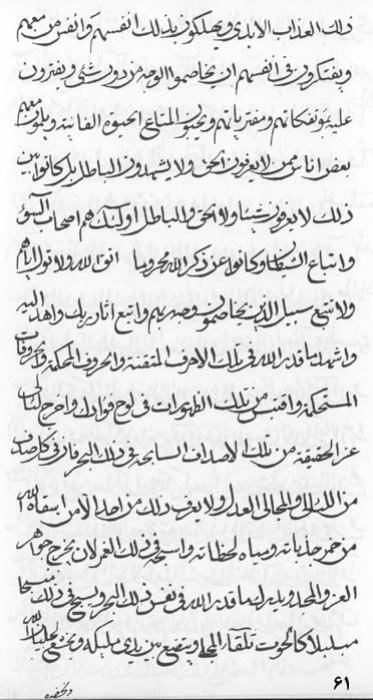 ذلك العذاب الابدي ويهلكون بذلك انفسهم وانفس من معهم
ويفتكرون في انفسهم ان يخاصموا الوجه من دون شيء ويفترون
عليه بمؤتفكاتهم ومفترياتهم ويحبون المتاع الحيوة الفانية ويلون معهم
بعض اناس ممن لا يعرفون الحق ولا يشهدون الباطل بل كانوا بين
ذلك لا يعرفون شيئا ولا الحق والباطل اولئك هم اصحاب
واتباع وكانوا عن ذكر الله محروما اتق الله ولا
ولا تتبع سبيل الذين يخاصمون وجه ربهم واتبع اثار ربك واهد اليه
واشهد ما قدر الله في تلك الاحرف المتقنة والحروف المحكمة
المستحكمة واقتبس من تلك الظهورات في لوح فؤادك واخرج
عز الحقيقة من تلك الاصداف السابحة في ذلك البحر فان في كل صدف
من اللئالي والمجالي العدل ولا يعرف ذلك من احد الا من اسقاه الله
من خمر جذباته ومياه لحظاته واسبح في ذلك الغمر لان يخرج جوهر
العز والمجد ويلبس لما قدر الله في نفس ذلك البحر ويسبح في ذلك
كالحوت تلقاء ويتضع بين يدي مليكه ويخضع
٦١